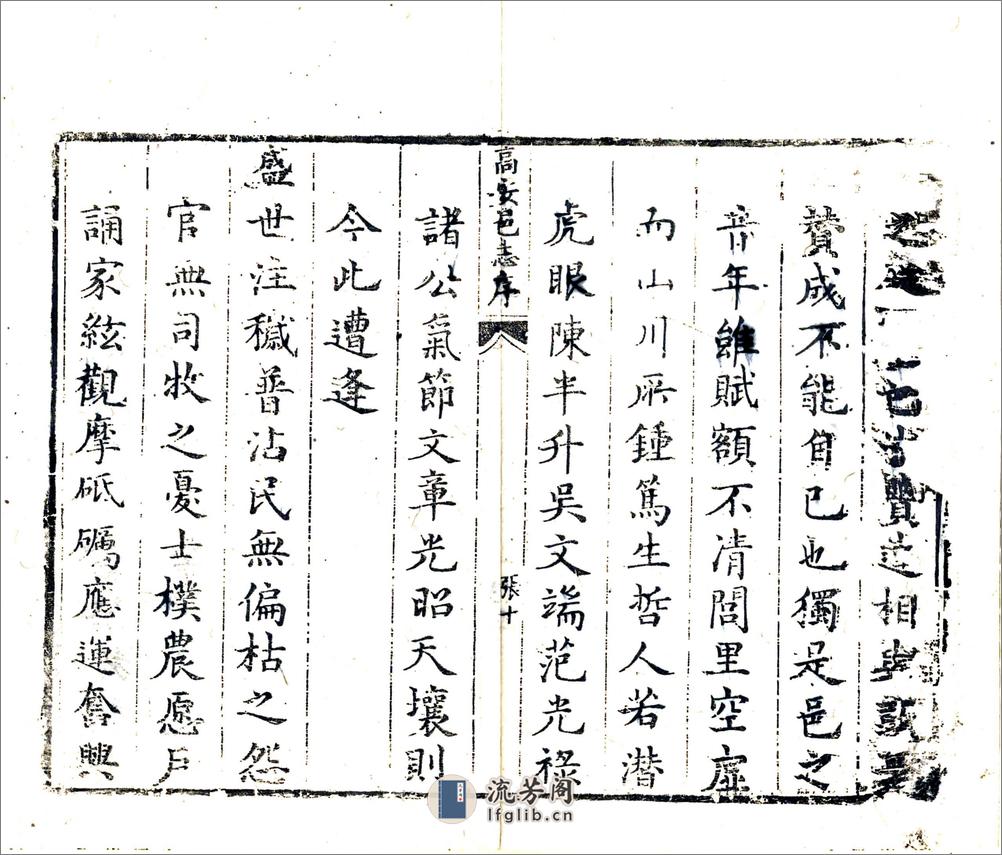 邑 賢達相與
賛成不能自已也獨是邑之
昔年雖賦額不清閭里空虛
而山川所鍾篤生哲人若潛
虎眼陳半升吳文端范光祿
高安邑志序
張十
諸公氣節文章光昭天壤則
今此遭逢
盛世汪穢普沾民無偏枯之怨
官無司牧之憂士樸農愿戶
誦家絃觀摩砥礪應運奮興
流芳阁
lfglib.cn